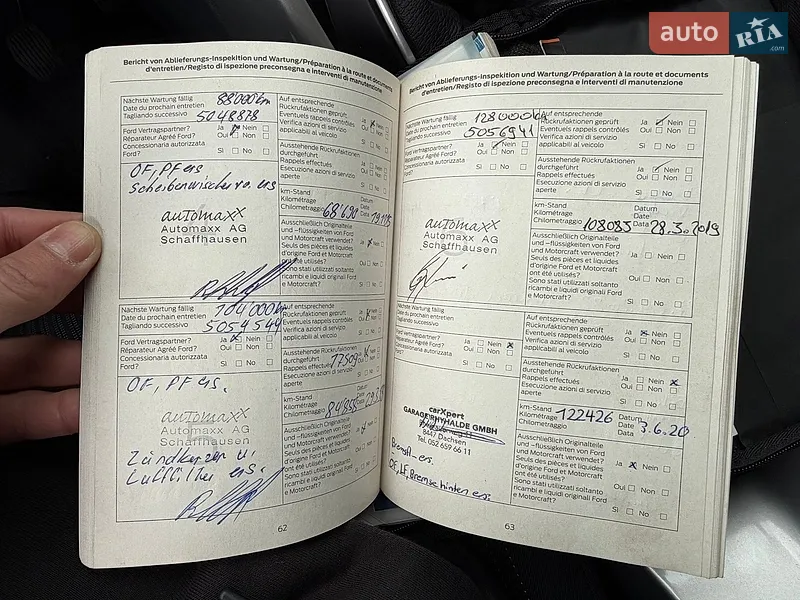 auto RIA .com
Bericht von Ablieferungs-Inspektion und Wartung/Préparation à la route et documents
d'entretien/Registo di ispezione preconsegna e interventi di manutenzione
Nächste Wartung fällig
Date du prochain entretien
Tagliando successivo
88'000 km
5048878
Ford Vertragspartner?
Réparateur Agréé Ford?
Concessionaria autorizzata
Ford?
Ja Nein
Oui Non
Sì No
OF, PF ers
Scheibenwischer vo. ers
automaxx
Automaxx AG
Schaffhausen
Auf entsprechende
Rückrufaktionen geprüft
Eventuels rappels contrôlés
Verifica azioni di servizio
applicabili al veicolo
Ja Nein
Oui Non
Sì No
Ausstehende Rückrufaktionen
durchgeführt
Rappels effectués
Esecuzione azioni di servizio
aperte
Ja Nein
Oui Non
Sì No
km-Stand
Kilométrage
Chilometraggio
68'690
Datum
Date
Data
Ausschließlich Originalteile
und -flüssigkeiten von Ford
und Motorcraft verwendet?
Seuls des pièces et liquides
d'origine Ford et Motorcraft
ont été utilisés?
Sono stati utilizzati soltanto
ricambi e liquidi originali Ford
e Motorcraft?
Ja Nein
Oui Non
Sì No
Nächste Wartung fällig
Date du prochain entretien
Tagliando successivo
104'000 km
5054544
Ford Vertragspartner?
Réparateur Agréé Ford?
Concessionaria autorizzata
Ford?
Ja Nein
Oui Non
Sì No
OF, PF ers.
automaxx
Automaxx AG
Schaffhausen
Zündkerzen u.
Luftfilter ers.
Auf entsprechende
Rückrufaktionen geprüft
Eventuels rappels contrôlés
Verifica azioni di servizio
applicabili al veicolo
Ja Nein
Oui Non
Sì No
Ausstehende Rückrufaktionen
durchgeführt
Rappels effectués
Esecuzione azioni di servizio
aperte
Ja Nein
Oui Non
Sì No
km-Stand
Kilométrage
Chilometraggio
84'858
Datum
Date
Data
Ausschließlich Originalteile
und -flüssigkeiten von Ford
und Motorcraft verwendet?
Seuls des pièces et liquides
d'origine Ford et Motorcraft
ont été utilisés?
Sono stati utilizzati soltanto
ricambi e liquidi originali Ford
e Motorcraft?
Ja Nein
Oui Non
Sì No
62
Bericht von Ablieferungs-Inspektion und Wartung/Préparation à la route et documents
d'entretien/Registo di ispezione preconsegna e interventi di manutenzione
Nächste Wartung fällig
Date du prochain entretien
Tagliando successivo
128000 km
5056941
Ford Vertragspartner?
Réparateur Agréé Ford?
Concessionaria autorizzata
Ford?
Ja Nein
Oui Non
Sì No
automaxx
Automaxx AG
Schaffhausen
Auf entsprechende
Rückrufaktionen geprüft
Eventuels rappels contrôlés
Verifica azioni di servizio
applicabili al veicolo
Ja Nein
Oui Non
Sì No
Ausstehende Rückrufaktionen
durchgeführt
Rappels effectués
Esecuzione azioni di servizio
aperte
Ja Nein
Oui Non
Sì No
km-Stand
Kilométrage
Chilometraggio
108085
Datum
Date
Data
28.3.2019
Ausschließlich Originalteile
und -flüssigkeiten von Ford
und Motorcraft verwendet?
Seuls des pièces et liquides
d'origine Ford et Motorcraft
ont été utilisés?
Sono stati utilizzati soltanto
ricambi e liquidi originali Ford
e Motorcraft?
Ja Nein
Oui Non
Sì No
Nächste Wartung fällig
Date du prochain entretien
Tagliando successivo
Ford Vertragspartner?
Réparateur Agréé Ford?
Concessionaria autorizzata
Ford?
Ja Nein
Oui Non
Sì No
carXpert
GARAGE RHYHALDE GMBH
8447 Dachsen
Tel. 052 659 66 11
OF, LF, Bremse hinten ers.
Auf entsprechende
Rückrufaktionen geprüft
Eventuels rappels contrôlés
Verifica azioni di servizio
applicabili al veicolo
Ja Nein
Oui Non
Sì No
Ausstehende Rückrufaktionen
durchgeführt
Rappels effectués
Esecuzione azioni di servizio
aperte
Ja Nein
Oui Non
Sì No
km-Stand
Kilométrage
Chilometraggio
122426
Datum
Date
Data
3.6.20
Ausschließlich Originalteile
und -flüssigkeiten von Ford
und Motorcraft verwendet?
Seuls des pièces et liquides
d'origine Ford et Motorcraft
ont été utilisés?
Sono stati utilizzati soltanto
ricambi e liquidi originali Ford
e Motorcraft?
Ja Nein
Oui Non
Sì No
63